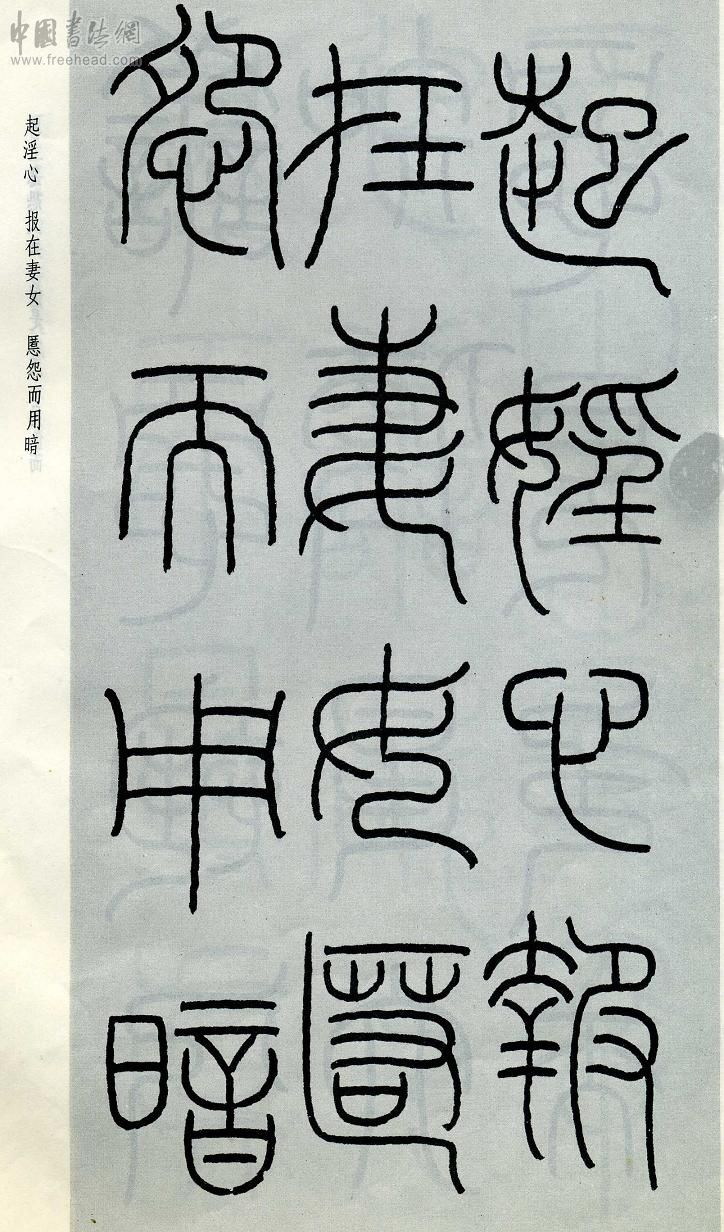 中國书法網
www.freehead.com
起婬心報
在妻女匿
怨而用暗
起淫心 报在妻女 慝怨而用暗